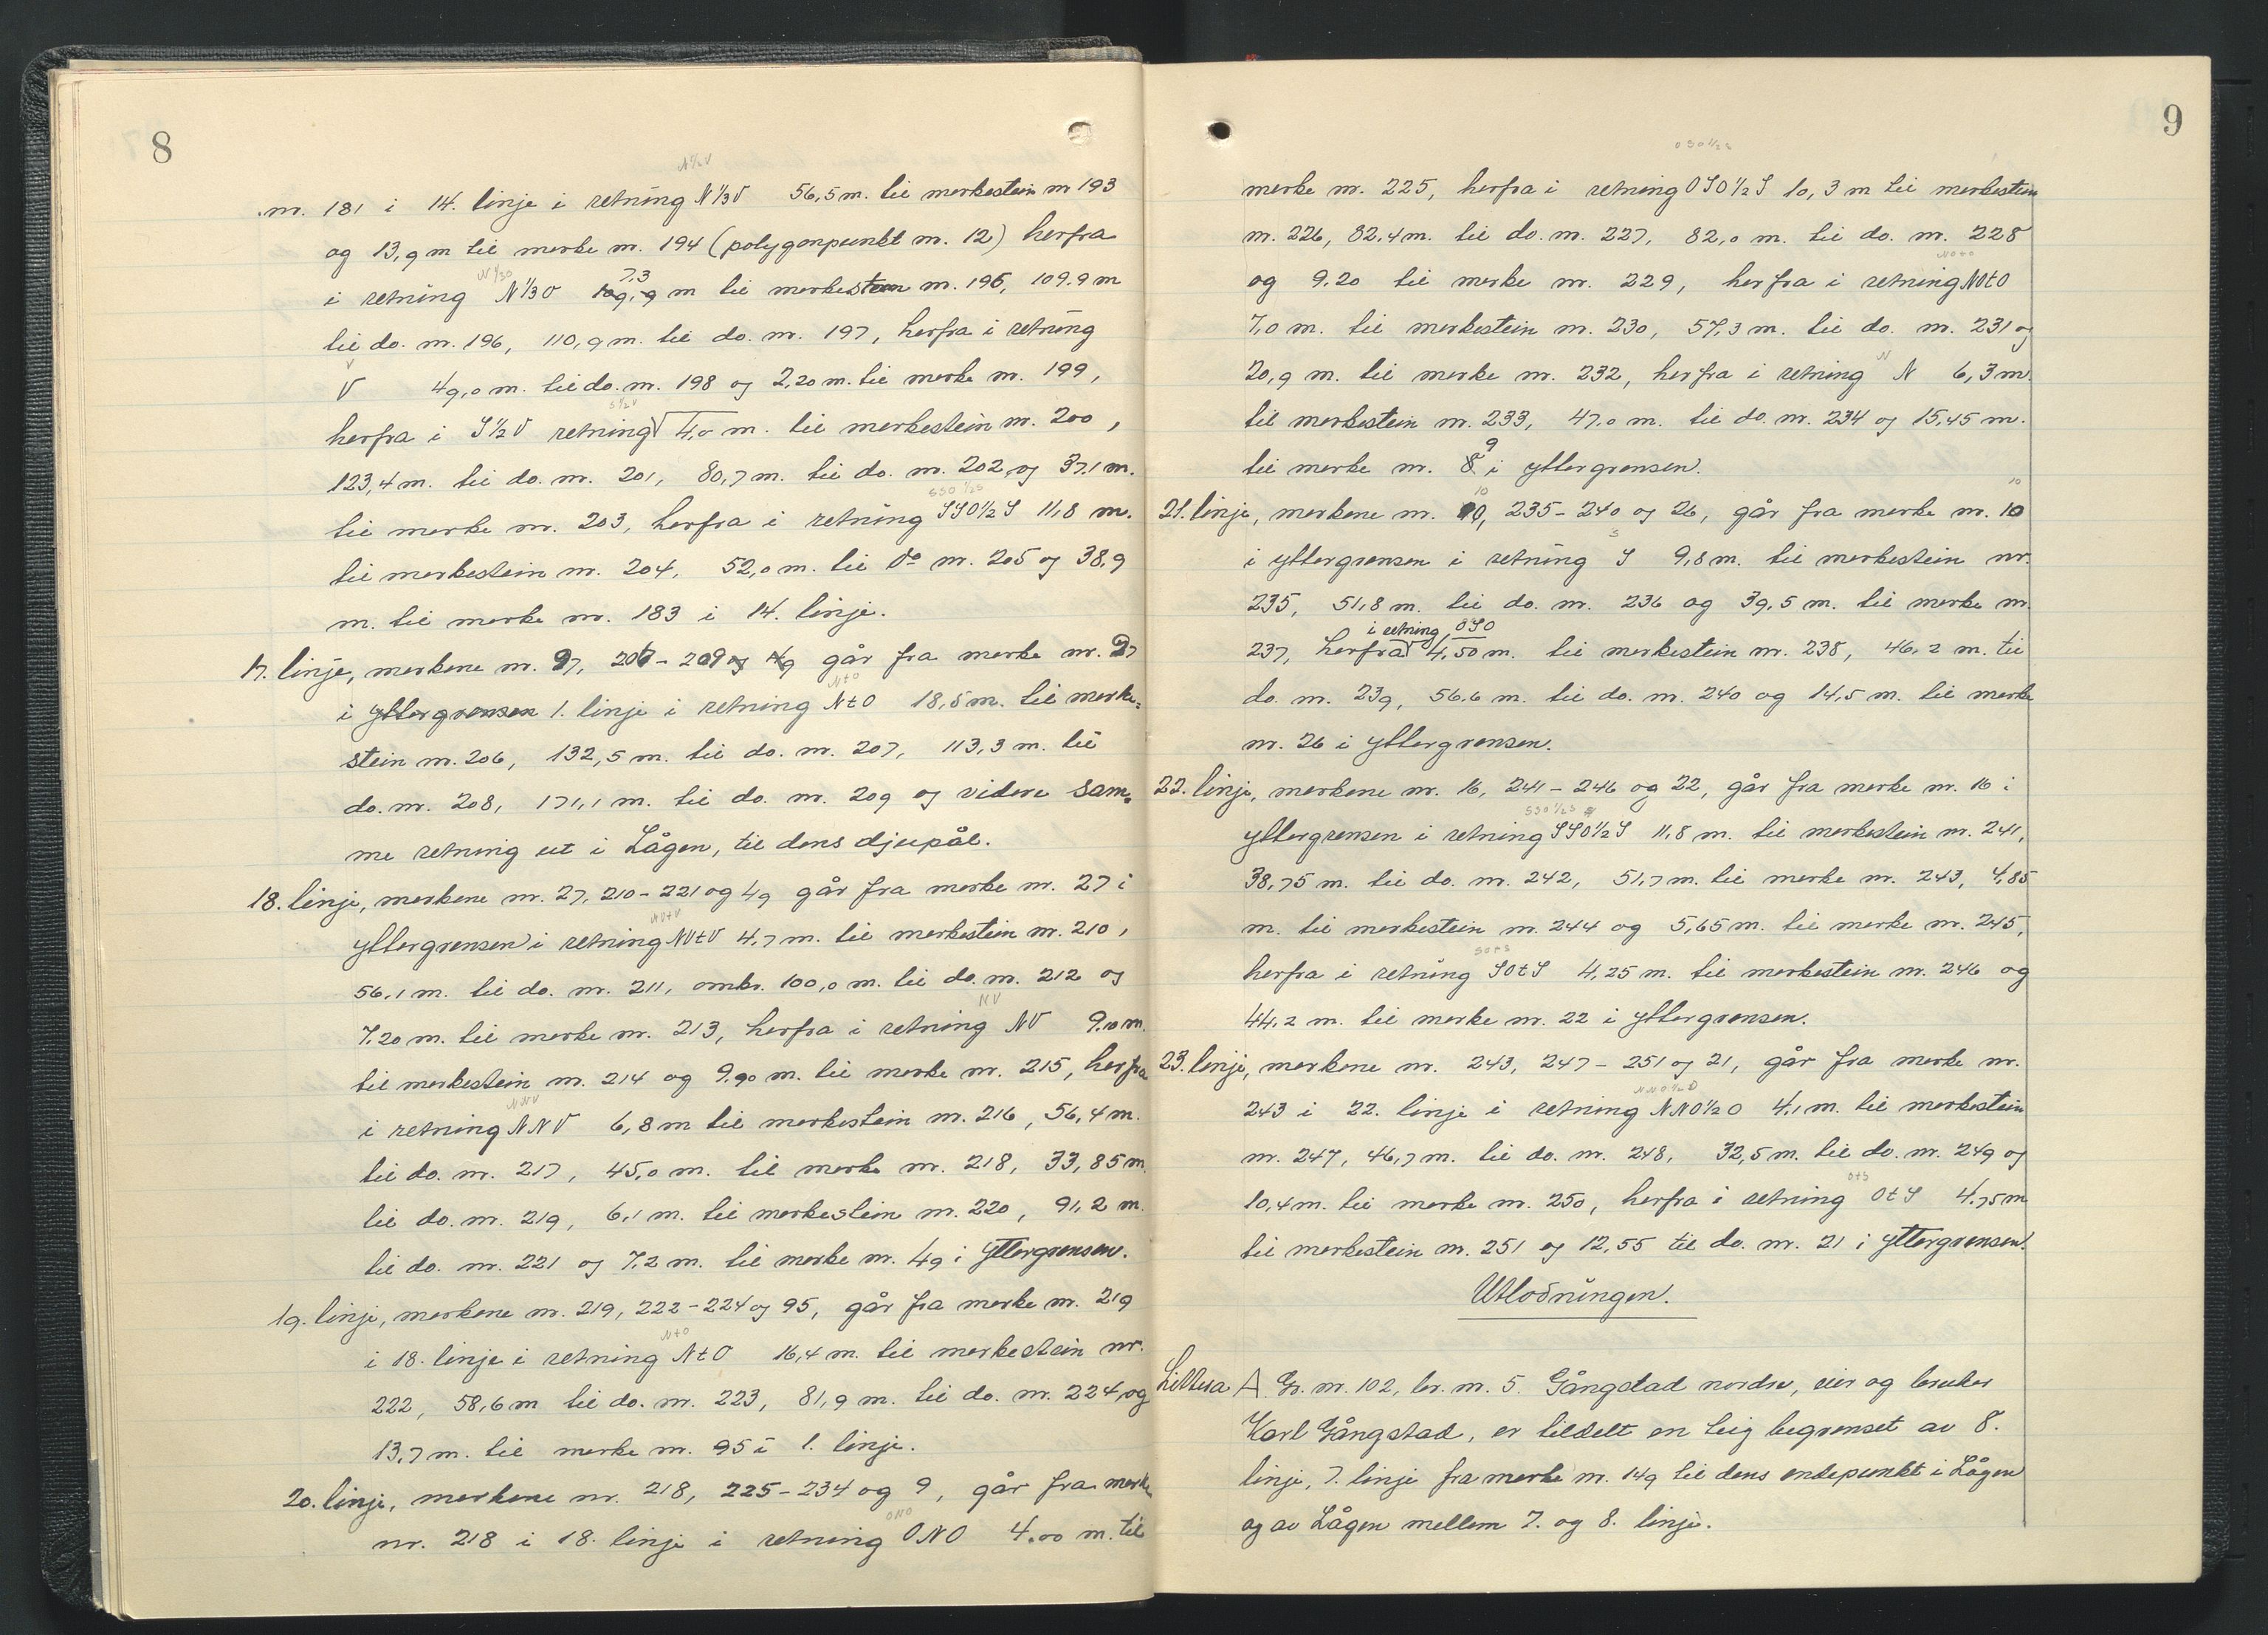 8
N 1/3 V
nr. 181 i 14. linje i retning N 1/3 V 56,5 m. til merkestein nr 193
og 13,9 m til merke nr. 194 (polygonpunkt nr. 12) herfra
N 1/3 O 7,3
i retning N 1/3 O 109,9 m til merkestein nr. 195, 109.9 m
til do. nr. 196, 110,9 m. til do. nr. 197, herfra i retning
V
V 49,0 m. til do. nr. 198 og 2,20 m. til merke nr. 199,
S 1/2 V
herfra i S 1/2 V retning 4,0 m. til merkestein nr. 200,
123,4 m. til do. nr. 201, 80,7 m. til do. nr. 202 og 37.1 m.
SSO 1/2 S
til merke nr. 203, herfra i retning SSO 1/2 S 11,8 m.
til merkestein nr. 204, 52,0 m. til do nr. 205 og 38,9
m. til merke nr. 183 i 14. linje.
17. linje, merkene nr. 97, 206 - 209 og 49 går fra merke nr. 97
N t O
i yttergrensen 1. linje i retning N t O 18,5 m. til merke=
stein nr. 206, 132,5 m. til do. nr. 207, 113,3 m. til
do. nr. 208, 171,1 m. til do. nr. 209 og videre sam=
me retning ut i Lågen, til dens djupål.
18. linje, merkene nr. 27, 210 - 221 og 49 går fra merke nr. 27 i
NV t V
yttergrensen i retning NV t V 4,7 m. til merkestein nr. 210,
56,1 m. til do. nr. 211, omkr. 100,0 m. til do. nr. 212 og
NV
7,20 m. til merke nr. 213, herfra i retning NV 9.10 m.
til merkestein nr. 214 og 9.90 m. til merke nr. 215, herfra
NNV
i retning NNV 6,8 m til merkestein nr. 216, 56,4 m.
til do. nr. 217, 45,0 m. til merke nr. 218, 33,85 m.
til do. nr. 219, 6,1 m. til merkestein nr. 220, 91,2 m.
til do. nr. 221 og 7,2 m. til merke nr. 49 i yttergrensen.
19. linje, merkene nr. 219, 222 - 224 og 95, går fra merke nr. 219
N t O
i 18. linje i retning N t O 16,4 m. til merkestein nr.
222, 58,6 m til do. nr. 223, 81,9 m. til do. nr. 224, og
13,7 m. til merke nr. 95 i 1. linje.
20. linje, merkene nr. 218, 225 - 234 og 9, går fra merke
ONO
nr. 218 i 18. linje i retning ONO 4.00 m. til
9
OSO 1/2 S
merke nr. 225, herfra i retning OSO 1/2 S 10,3 m til merkestein
nr. 226, 82,4 m. til do. nr. 227, 82,0 m. til do. nr. 228
NO t O
og 9,20 til merke nr. 229, herfra i retning NO t O
7,0 m. til merkestein nr. 230, 57,3 m. til do. nr. 231 og
N
20,9 m. til merke nr. 232, herfra i retning N 6,3 m.
til merkestein nr. 233, 47,0 m. til do. nr. 234 og 15,45 m.
9
til merke nr. 8 i yttergrensen.
10 10
21. linje, merkene nr. 10, 235 - 240 og 26, går fra merke nr. 10
S
i yttergrensen i retning S 9,8 m. til merkestein nr.
235, 51,8 m. til do. nr. 236 og 39,5 m. til merke nr.
i retning OSO
237, herfra 4,50 m. til merkestein nr. 238, 46,2 m. til
do. nr. 239, 56,6 m. til do. nr. 240 og 14,5 m. til merke
nr. 26 i yttergrensen.
22. linje, merkene nr. 16, 241 - 246 og 22, går fra merke nr. 16 i
SSO 1/2 S
yttergrensen i retning SSO 1/2 S 11,8 m. til merkestein nr. 241,
38,75 m. til do. nr. 242, 51,7 m. til merke nr. 243, 4,85
m. til merkestein nr. 244 og 5,65 m. til merke nr. 245,
SO t S
herfra i retning SO t S 4,25 m. til merkestein nr. 246 og
44,2 m. til merke nr. 22 i yttergrensen.
23. linje, merkene nr. 243, 247 - 251 og 21, går fra merke nr.
NNO 1/2 O
243 i 22. linje i retning NNO 1/2 O 4,1 m. til merkestein
nr. 247, 46,7 m. til do. nr. 248, 32,5 m. til do. nr. 249 og
O t S
10,4 m. til merke nr. 250, herfra i retning O t S 4,75 m
til merkestein nr. 251 og 12,55 til do. nr. 21 i yttergrensen.
Utlodningen.
Littera A. Gr. nr. 102, br. nr. 5. Gångstad nordre, eier og bruker
Karl Gångstad, er tildelt en teig begrenset av 8.
linje, 7. linje fra merke nr. 149 til dens endepunkt i Lågen
og av Lågen mellem 7. og 8. linje.